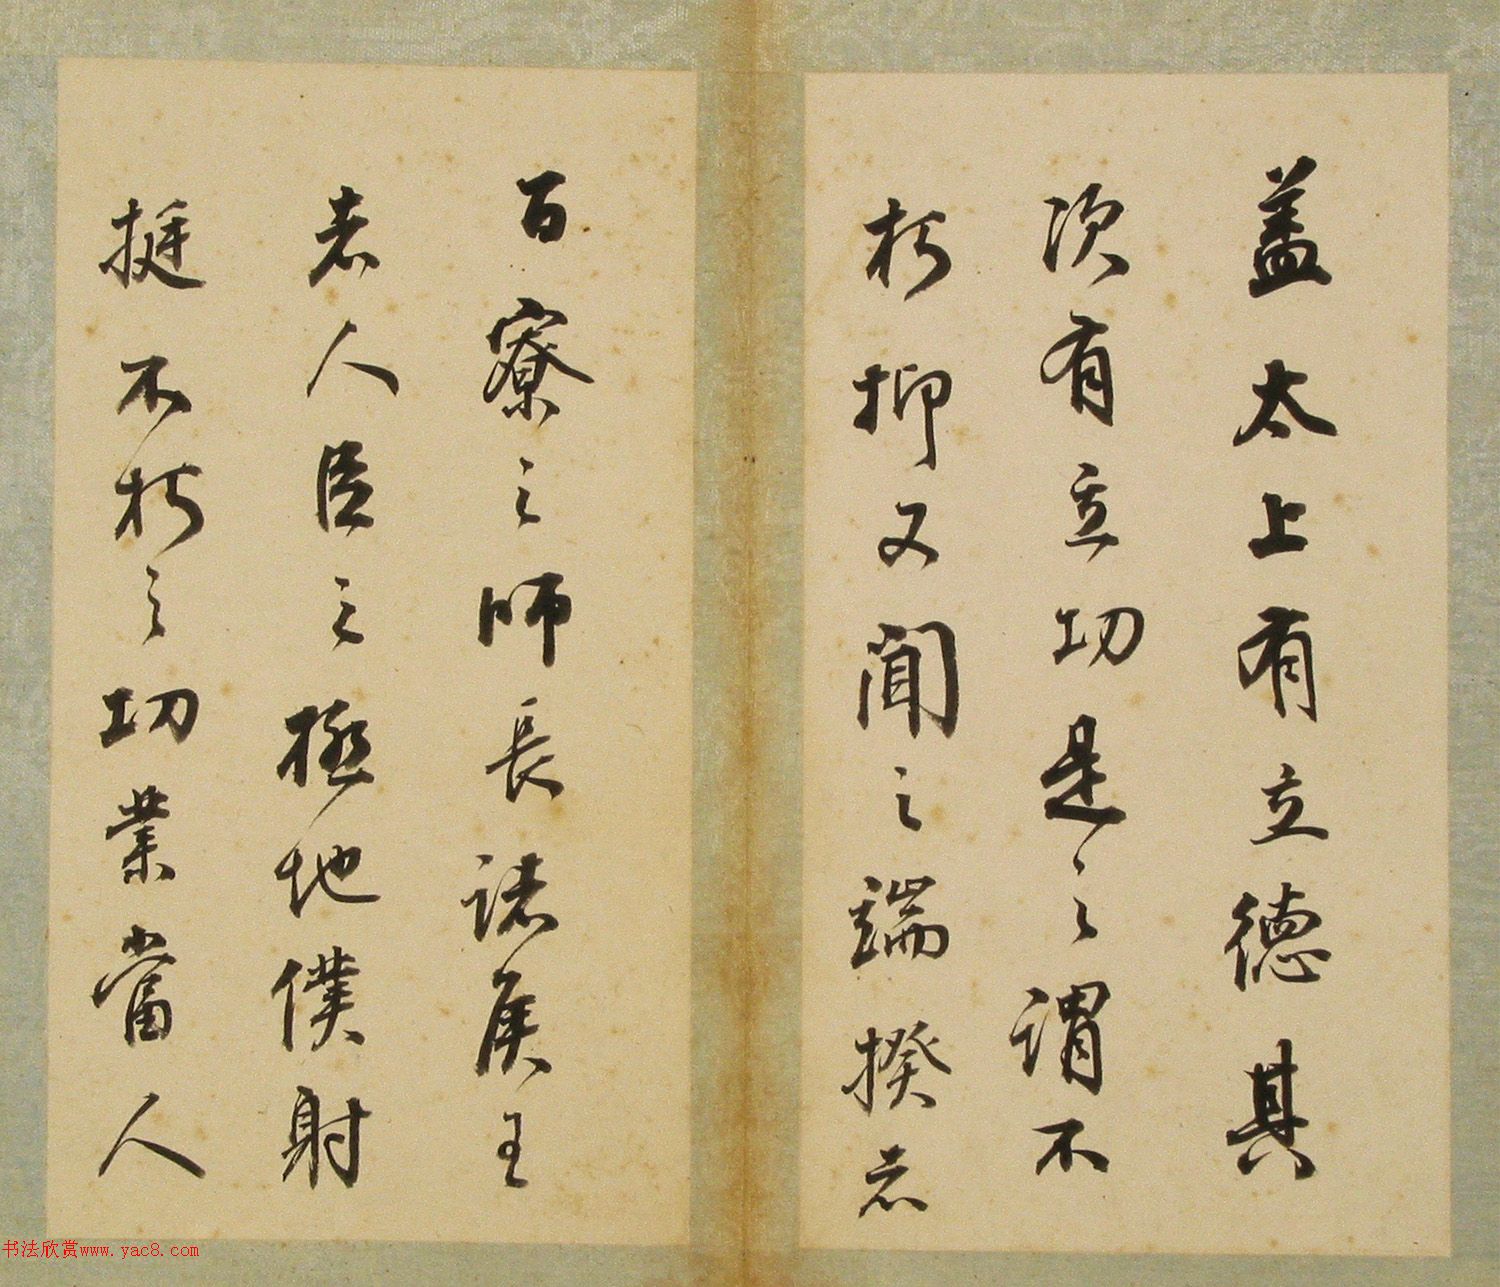 蓋太上有立德其
次有立功是之謂不
朽抑又聞之端揆者
百寮之師長諸侯王
者人臣之極地僕射
挺不朽之功業當人
书法欣赏www.yac8.com